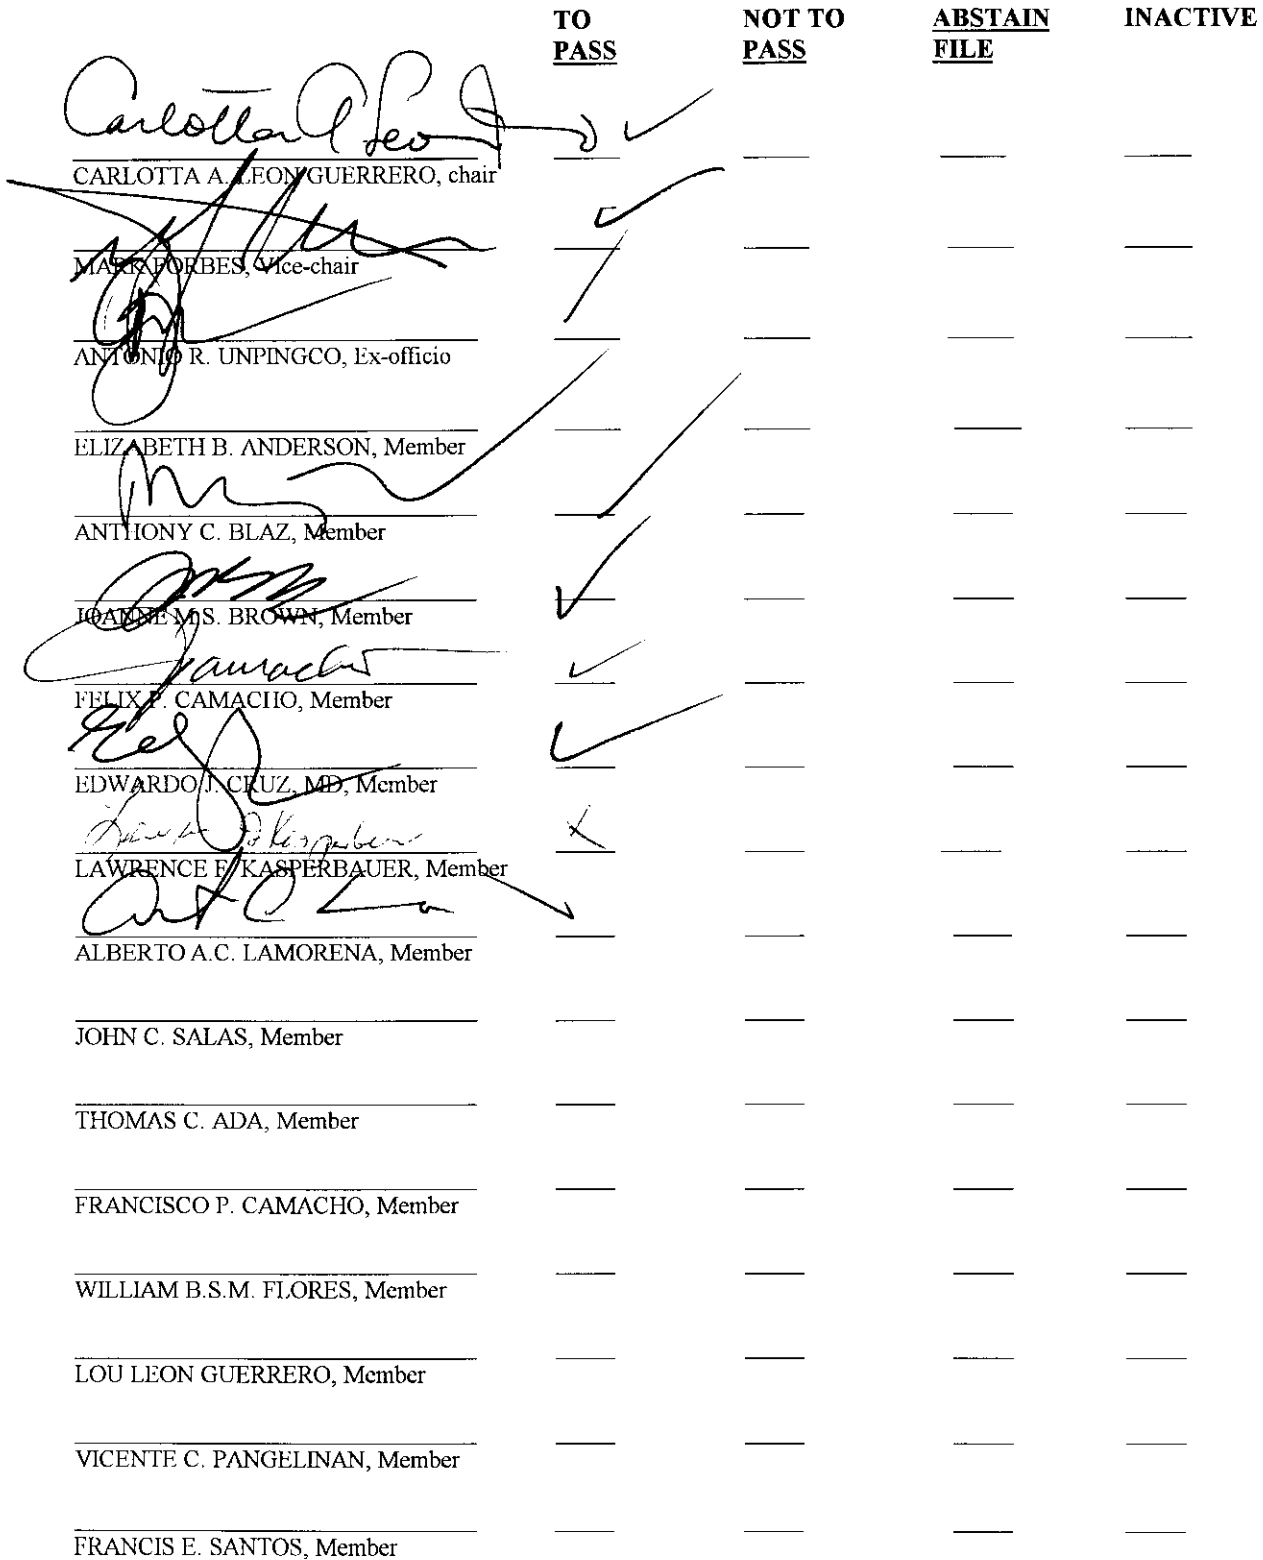 TO NOT TO ABSTAIN INACTIVE
PASS PASS FILE
Carlotta A Leon
CARLOTTA A. LEON GUERRERO, chair
MARK FORBES, Vice-chair
ANTONIO R. UNPINGCO, Ex-officio
ELIZABETH B. ANDERSON, Member
ANTHONY C. BLAZ, Member
JOANNE M.S. BROWN, Member
Camacho
FELIX P. CAMACHO, Member
EDWARDO J. CRUZ, MD, Member
Kasperbauer
LAWRENCE F. KASPERBAUER, Member
ALBERTO A.C. LAMORENA, Member
JOHN C. SALAS, Member
THOMAS C. ADA, Member
FRANCISCO P. CAMACHO, Member
WILLIAM B.S.M. FLORES, Member
LOU LEON GUERRERO, Member
VICENTE C. PANGELINAN, Member
FRANCIS E. SANTOS, Member